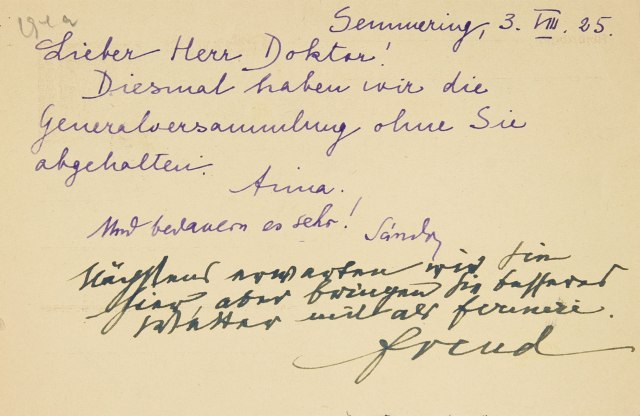 Semmering, 3. VIII. 25.
Lieber Herr Doktor!
Diesmal haben wir die
Generalversammlung ohne Sie
abgehalten.
Anna.
Und bedauern es sehr!
Sándor
Nächstens erwarten wir Sie
hier, aber bringen Sie besseres
Wetter mit als
Freud